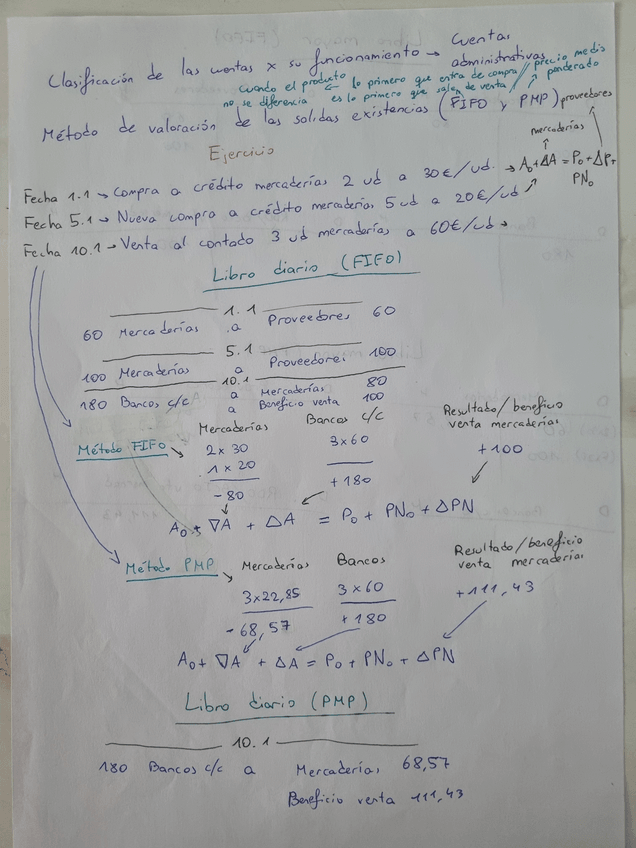 Clasificación de las cuentas x su funcionamiento → Cuentas administrativas
cuando el producto no se diferencia ← lo primero que entra de compra es lo primero que sale de venta / precio medio ponderado
Método de valoración de las salidas existencias (FIFO y PMP)
proveedores
Ejercicio
mercaderías
Fecha 1.1 → Compra a crédito mercaderías 2 ud a 30€/ud. → A₀+ΔA = P₀+ΔP+PN₀
Fecha 5.1 → Nueva compra a crédito mercaderías 5 ud a 20€/ud
Fecha 10.1 → Venta al contado 3 ud mercaderías a 60€/ud →
Libro diario (FIFO)
1.1
60 Mercaderías a Proveedores 60
5.1
100 Mercaderías a Proveedores 100
10.1
180 Bancos c/c a Mercaderías 80
a Beneficio venta 100
Método FIFO
Mercaderías Bancos c/c Resultado/beneficio venta mercaderías
2x30 3x60 +100
1x20
-80 +180
A₀+ ∇A + ΔA = P₀ + PN₀ + ΔPN
Método PMP
Mercaderías Bancos Resultado/beneficio venta mercaderías
3x22,85 3x60 +111,43
-68,57 +180
A₀+ ∇A + ΔA = P₀ + PN₀ + ΔPN
Libro diario (PMP)
10.1
180 Bancos c/c a Mercaderías 68,57
Beneficio venta 111,43